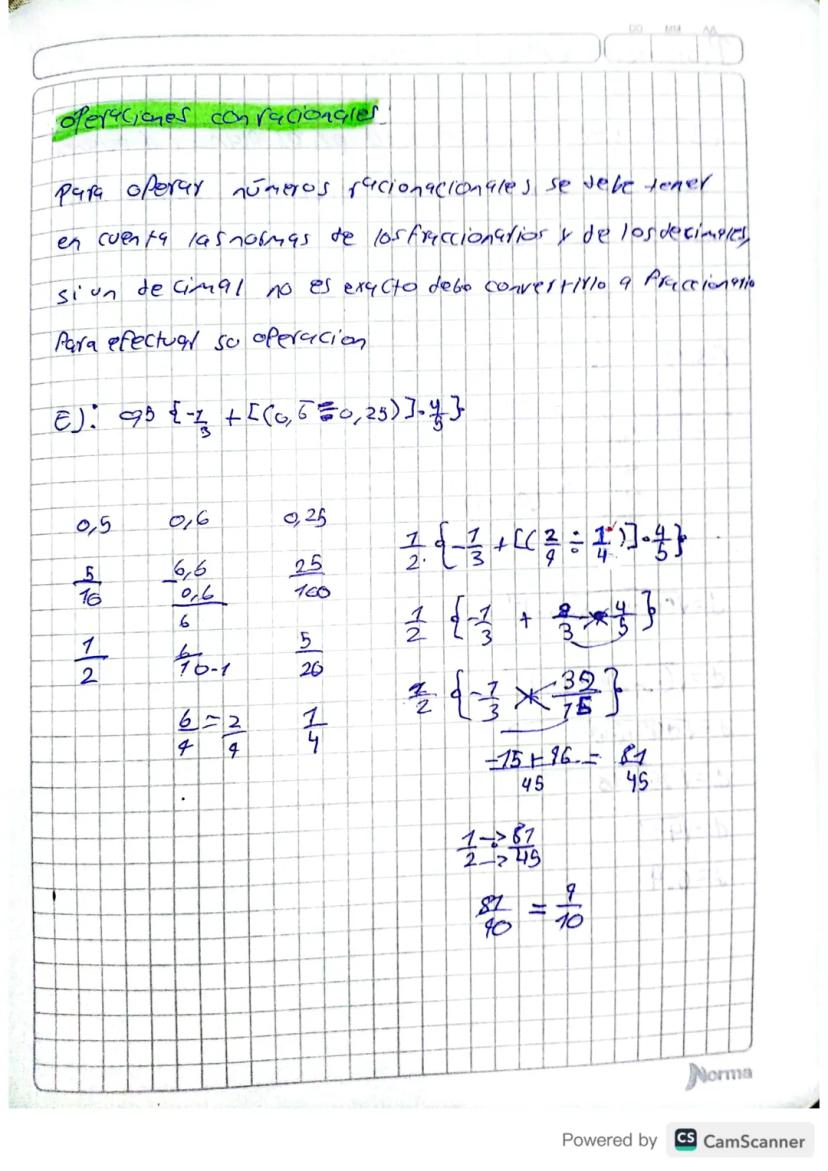 DD MM AA
operaciones con racionales
Para operar números racionacionales, se debe tener
en cuenta las normas de los fraccionarios y de los decimales,
si un decimal no es exacto debo convertirlo a fraccionario
Para efectuar su operacion
Ej: 0,5 {-1/3 + [(0,6 ÷ 0,25)] · 4/5}
0,5 0,6 0,25
5/10 6,6 25/100
-0,6
6
1/2 6/10-1 5/20
6/9 = 2/9 1/4
1/2 · {-1/3 + [(2/9 ÷ 1/4)] · 4/5}
1/2 {-1/3 + 8/3 × 4/5}
1/2 {-1/3 × 32/15}
-15+96/45 = 81/45
1/2 → · → 81/45
81/90 = 9/10
Norma
Powered by CS CamScanner